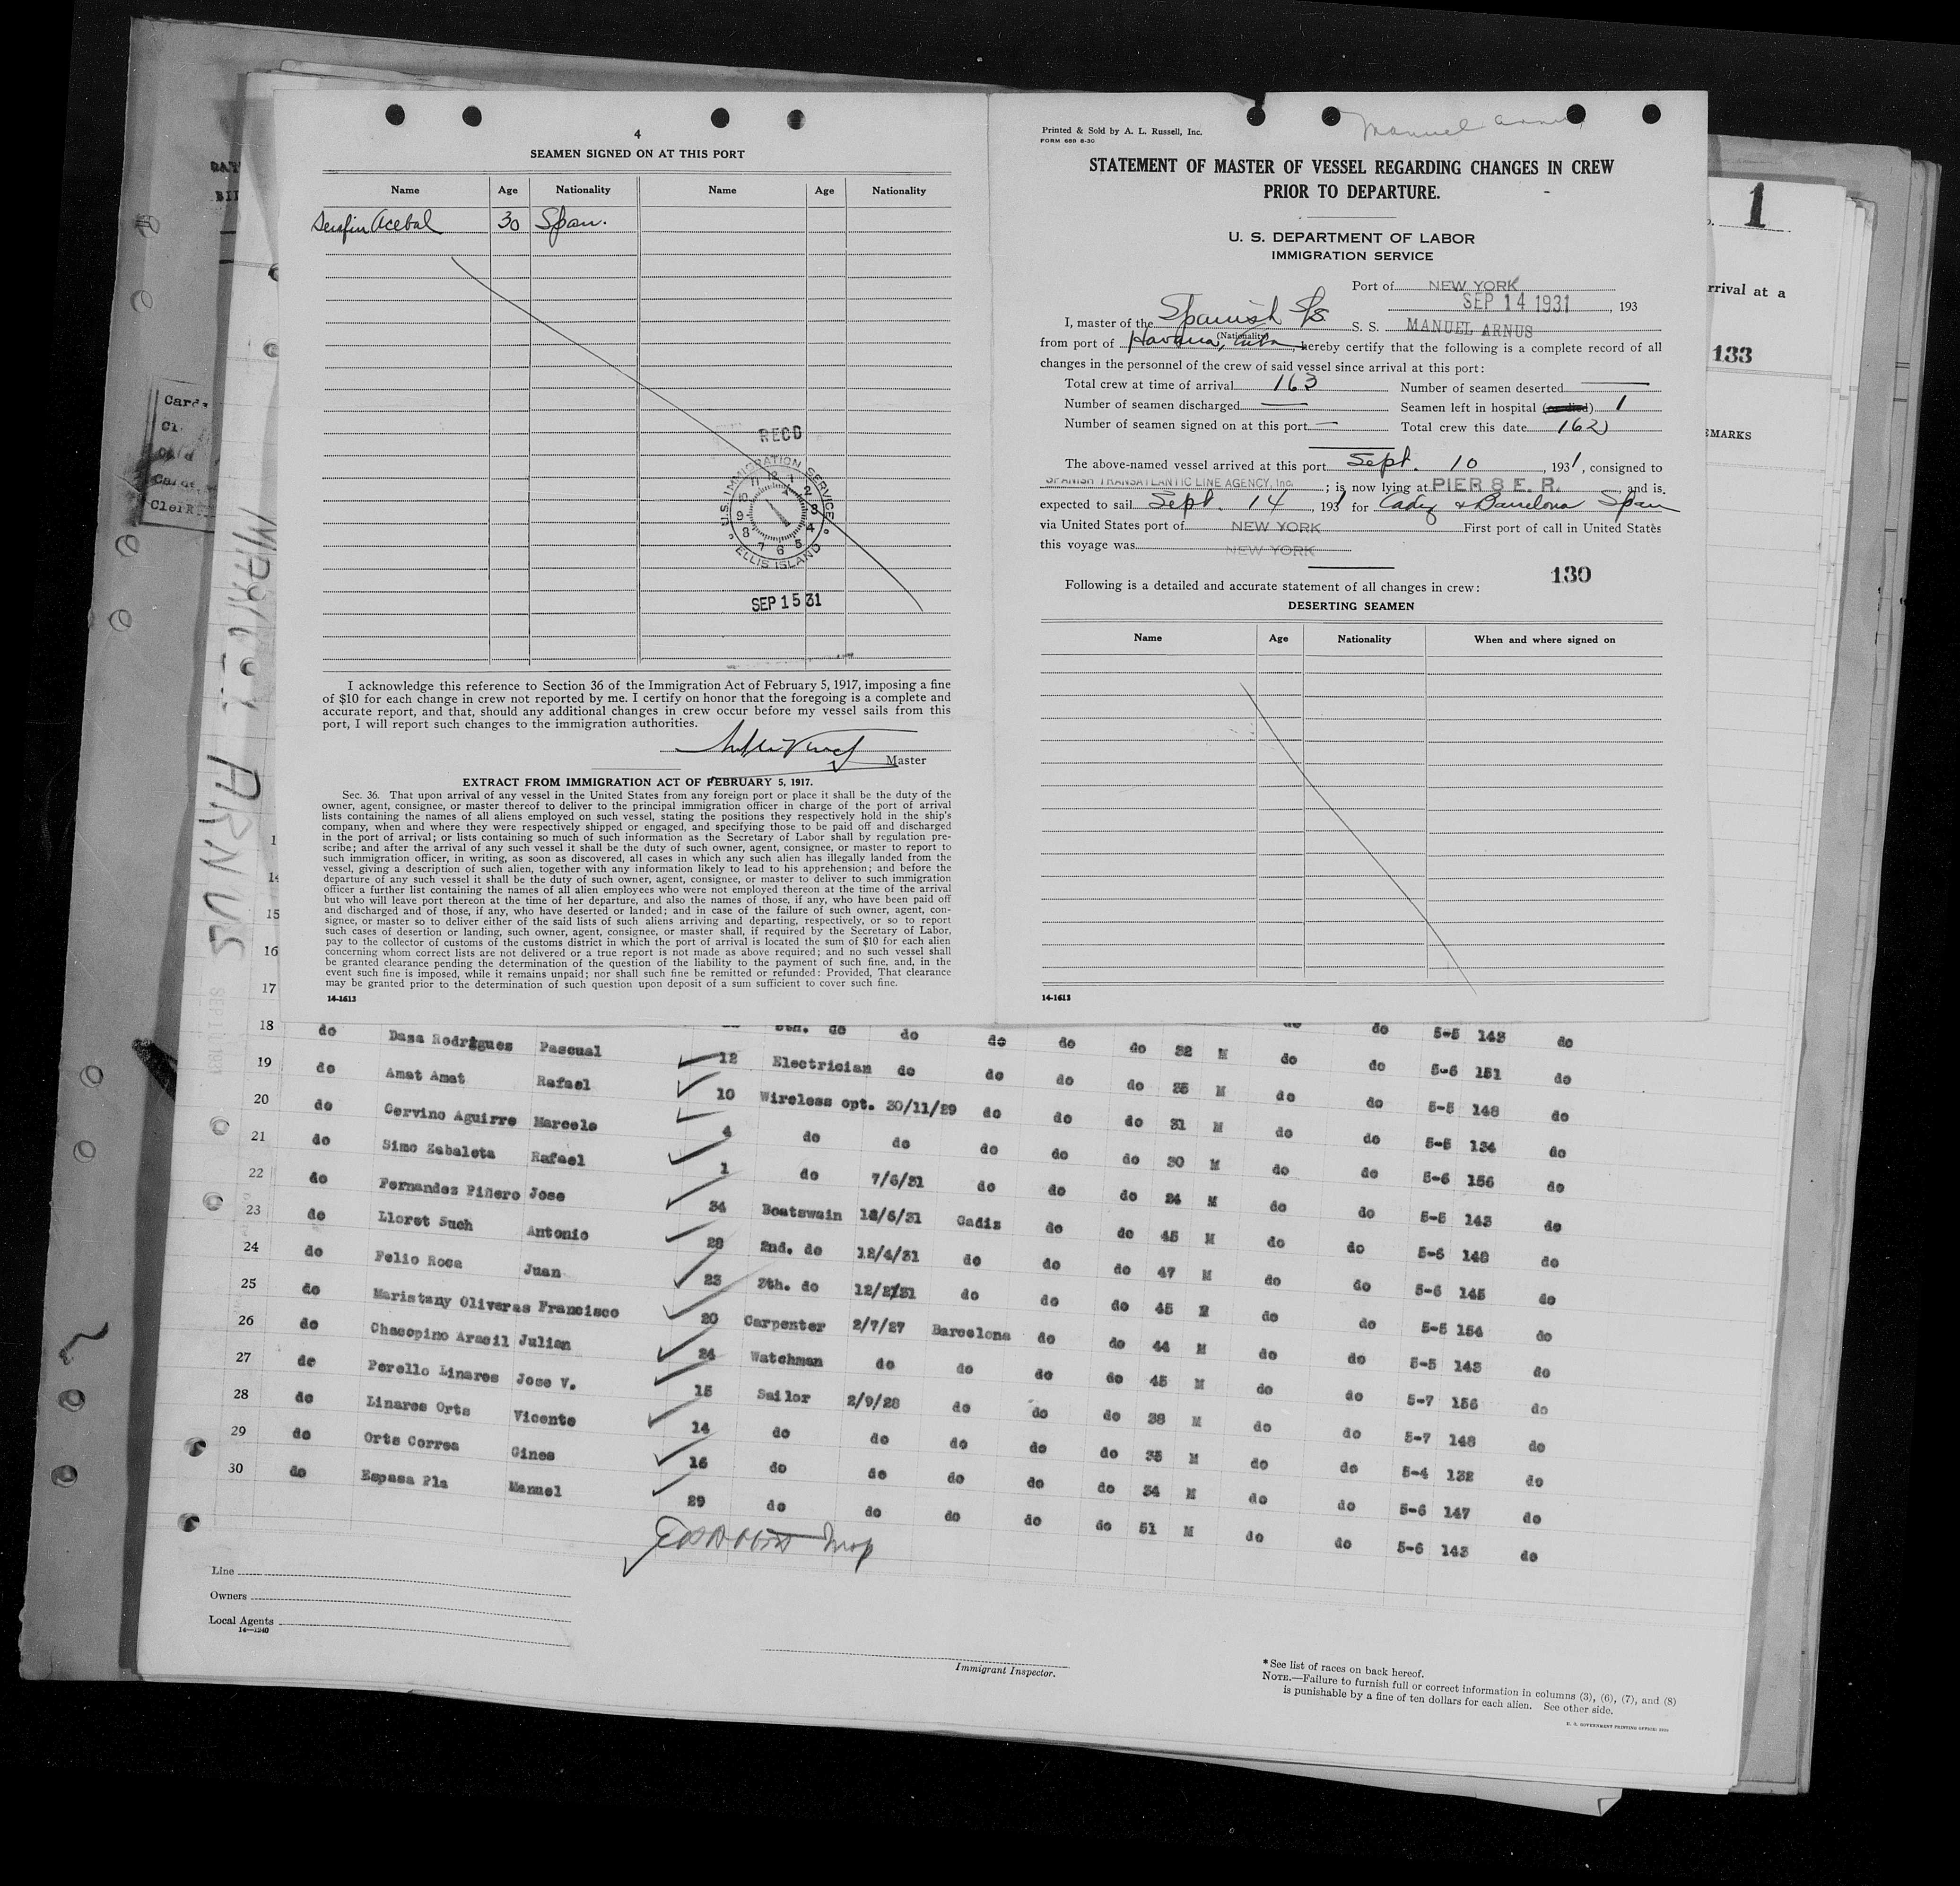 4
SEAMEN SIGNED ON AT THIS PORT
Name Age Nationality Name Age Nationality
Serafin Acebal 30 Span.
RECD
U.S. IMMIGRATION SERVICE
ELLIS ISLAND
SEP 15 31
I acknowledge this reference to Section 36 of the Immigration Act of February 5, 1917, imposing a fine
of $10 for each change in crew not reported by me. I certify on honor that the foregoing is a complete and
accurate report, and that, should any additional changes in crew occur before my vessel sails from this
port, I will report such changes to the immigration authorities.
Master
EXTRACT FROM IMMIGRATION ACT OF FEBRUARY 5, 1917.
Sec. 36. That upon arrival of any vessel in the United States from any foreign port or place it shall be the duty of the
owner, agent, consignee, or master thereof to deliver to the principal immigration officer in charge of the port of arrival
lists containing the names of all aliens employed on such vessel, stating the positions they respectively hold in the ship's
company, when and where they were respectively shipped or engaged, and specifying those to be paid off and discharged
in the port of arrival; or lists containing so much of such information as the Secretary of Labor shall by regulation pre-
scribe; and after the arrival of any such vessel it shall be the duty of such owner, agent, consignee, or master to report to
such immigration officer, in writing, as soon as discovered, all cases in which any such alien has illegally landed from the
vessel, giving a description of such alien, together with any information likely to lead to his apprehension; and before the
departure of any such vessel it shall be the duty of such owner, agent, consignee, or master to deliver to such immigration
officer a further list containing the names of all alien employees who were not employed thereon at the time of the arrival
but who will leave port thereon at the time of her departure, and also the names of those, if any, who have been paid off
and discharged and of those, if any, who have deserted or landed; and in case of the failure of such owner, agent, con-
signee, or master so to deliver either of the said lists of such aliens arriving and departing, respectively, or so to report
such cases of desertion or landing, such owner, agent, consignee, or master shall, if required by the Secretary of Labor,
pay to the collector of customs of the customs district in which the port of arrival is located the sum of $10 for each alien
concerning whom correct lists are not delivered or a true report is not made as above required; and no such vessel shall
be granted clearance pending the determination of the question of the liability to the payment of such fine, and, in the
event such fine is imposed, while it remains unpaid; nor shall such fine be remitted or refunded: Provided, That clearance
may be granted prior to the determination of such question upon deposit of a sum sufficient to cover such fine.
14-1613
Manuel Arnus
Printed & Sold by A. L. Russell, Inc.
FORM 689 8-30
STATEMENT OF MASTER OF VESSEL REGARDING CHANGES IN CREW
PRIOR TO DEPARTURE.
U. S. DEPARTMENT OF LABOR
IMMIGRATION SERVICE
Port of NEW YORK
SEP 14 1931, 193
I, master of the Spanish S/S. S. S. MANUEL ARNUS
(Nationality)
from port of Havana, Cuba, hereby certify that the following is a complete record of all
changes in the personnel of the crew of said vessel since arrival at this port:
Total crew at time of arrival 163 Number of seamen deserted
Number of seamen discharged Seamen left in hospital (or died) 1
Number of seamen signed on at this port Total crew this date 162
The above-named vessel arrived at this port Sept. 10, 1931, consigned to
SPANISH TRANSATLANTIC LINE AGENCY, Inc.; is now lying at PIER 8 E. R., and is
expected to sail Sept. 14, 1931 for Cadiz & Barcelona Spain
via United States port of NEW YORK First port of call in United States
this voyage was NEW YORK
130
Following is a detailed and accurate statement of all changes in crew:
DESERTING SEAMEN
Name Age Nationality When and where signed on
14-1613
1
rrival at a
133
EMARKS
MANUEL ARNUS
14
15
16
17
18 do Dasa Rodrigues Pascual do do do do do 32 M do do 5-5 143 do
19 do Amat Amat Rafael 12 Electrician do do do do 35 M do do 5-6 151 do
20 do Cervino Aguirre Marcelo 10 Wireless opt. 30/11/29 do do do 31 M do do 5-5 148 do
21 do Simo Zabaleta Rafael 4 do do do do do 30 M do do 5-5 134 do
22 do Fernandez Piñero Jose 1 do 7/6/31 do do do 24 M do do 5-6 156 do
23 do Lloret Such Antonio 34 Boatswain 12/6/31 Cadiz do do 45 M do do 5-5 143 do
24 do Felio Roca Juan 28 2nd. do 12/4/31 do do do 47 M do do 5-6 148 do
25 do Maristany Oliveras Francisco 23 3th. do 12/2/31 do do do 45 M do do 5-6 145 do
26 do Chacopino Aracil Julian 20 Carpenter 2/7/27 Barcelona do do 44 M do do 5-5 154 do
27 do Perello Linares Jose V. 24 Watchman do do do do 45 M do do 5-5 143 do
28 do Linares Orts Vicente 15 Sailor 2/9/28 do do do 38 M do do 5-7 156 do
29 do Orts Correa Gines 14 do do do do do 35 M do do 5-7 148 do
30 do Espasa Pla Manuel 16 do do do do do 34 M do do 5-4 132 do
29 do do do do do 51 M do do 5-6 147 do
5-6 143 do
Line
Owners
Local Agents
14—1240
Immigrant Inspector.
*See list of races on back hereof.
NOTE.—Failure to furnish full or correct information in columns (3), (6), (7), and (8)
is punishable by a fine of ten dollars for each alien. See other side.
U. S. GOVERNMENT PRINTING OFFICE: 1930